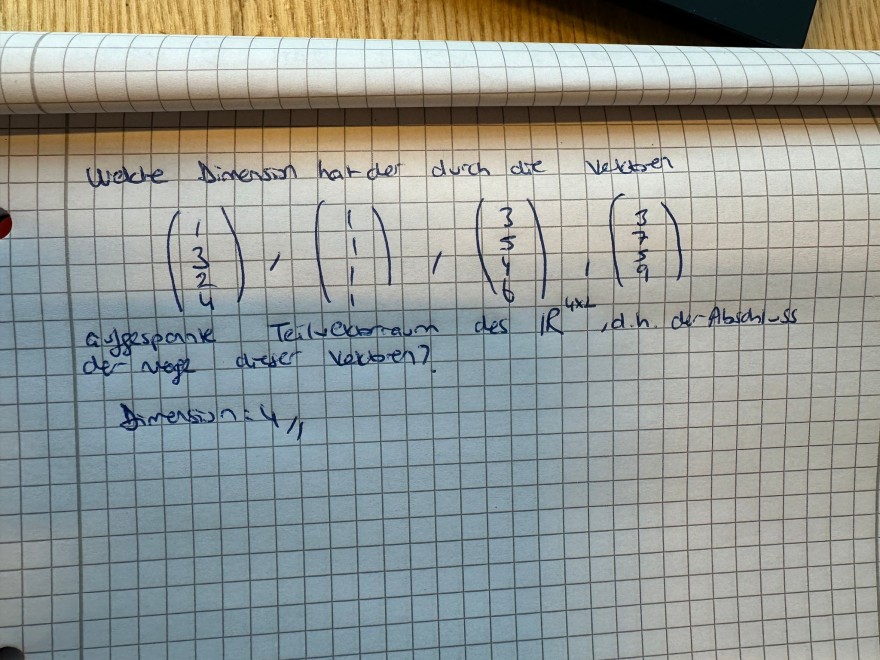 Welche Dimension hat der durch die Vektoren
( 1 3 2 4 ) , ( 1 1 1 1 ) , ( 3 5 4 6 ) , ( 3 7 5 9 )
aufgespannte Teilvektorraum des ℝ^4x1 , d.h. der Abschluss
der Menge dieser Vektoren?
Dimension = 4 //